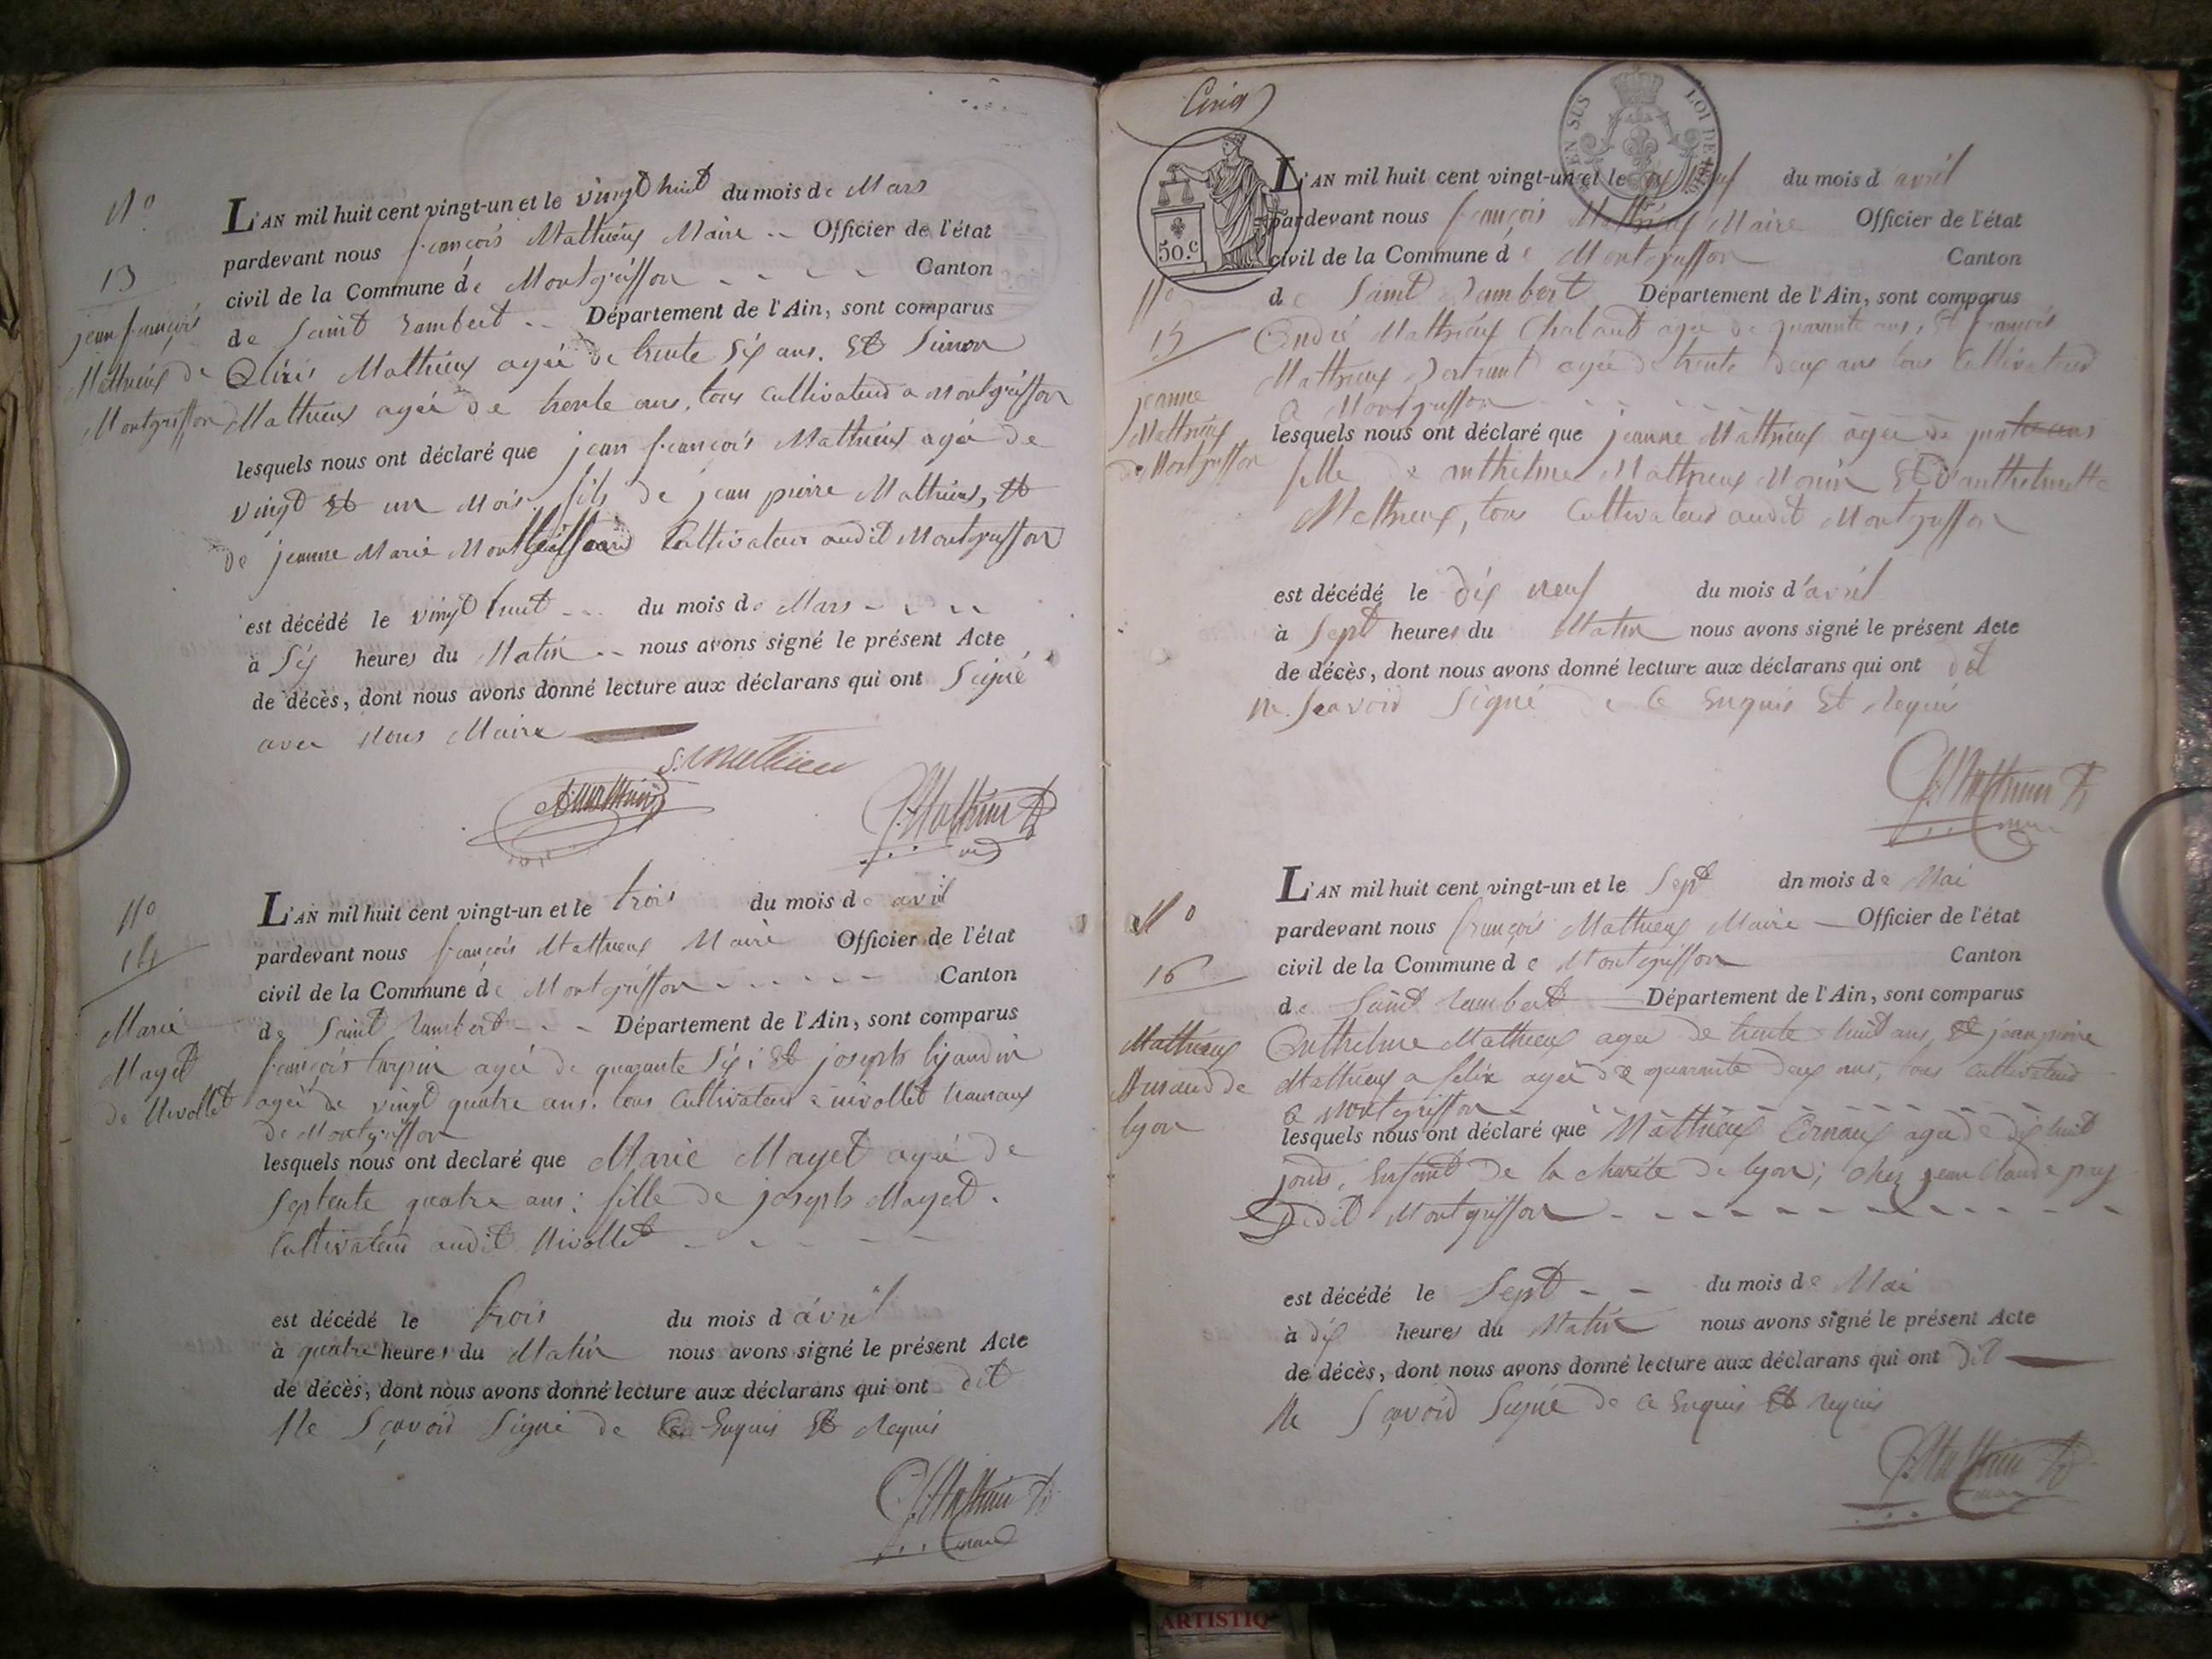 N.o
13
jean françois
Mathieux de
Montgriffon
L'AN mil huit cent vingt-un et le vingt huit du mois de Mars
pardevant nous françois Mathieux Maire Officier de l'état
civil de la Commune de Montgriffon Canton
de Saint Rambert Département de l'Ain, sont comparus
Mathieux agée de trente Six ans. Et Simon
Mathieux agée de trente ans, tous cultivateurs a Montgriffon
lesquels nous ont déclaré que jean françois Mathieux agée de
vingt Et un Mois fils de jean pierre Mathieux, Et
de jeanne Marie Cultivateurs audit Montgriffon
est décédé le vingt huit du mois de Mars
à Six heures du Matin nous avons signé le présent Acte
de décès, dont nous avons donné lecture aux déclarans qui ont Signé
avec Nous Maire
S. Mathieu
N.o
14
Marie
Mayet
de Nivollet
L'AN mil huit cent vingt-un et le trois du mois de avril
pardevant nous françois Mathieux Maire Officier de l'état
civil de la Commune de Montgriffon Canton
de Saint Rambert Département de l'Ain, sont comparus
françois turpin agée de quarante Six ; Et joseph
agée de vingt quatre ans. tous Cultivateurs a nivollet hameaux
de Montgriffon
lesquels nous ont declaré que Marie Mayet agée de
Septente quatre ans : fille de joseph Mayet.
Cultivateurs audit Nivollet
est décédé le trois du mois d avril
à quatre heures du Matin nous avons signé le présent Acte
de décès, dont nous avons donné lecture aux déclarans qui ont dit
Ne Sçavoir Signé de Ce Enquis Et Requis
Cinq
EN SUS LOI DE 1816
50.c
N.o
15
jeanne
Mathieux
de Montgriffon
L'AN mil huit cent vingt-un et le dix neuf du mois d avril
pardevant nous françois Mathieux Maire Officier de l'état
civil de la Commune de Montgriffon Canton
de Saint Rambert Département de l'Ain, sont comparus
André Mathieux Chabaud agée de quarante ans, Et françois
Mathieux agée de trente deux ans tous Cultivateurs
a Montgriffon
lesquels nous ont déclaré que jeanne Mathieux agée de quatre ans
fille de anthelme Mathieux Et d'anthelmette
Mathieux, tous Cultivateurs audit Montgriffon
est décédé le dix neuf du mois d'avril
à Sept heures du Matin nous avons signé le présent Acte
de décès, dont nous avons donné lecture aux déclarans qui ont dit
ne Seavoir Signé de Ce Enquis Et Requis
N.o
16
Mathieux
de
lyon
L'AN mil huit cent vingt-un et le Sept dn mois de Mai
pardevant nous françois Mathieux Maire Officier de l'état
civil de la Commune de Montgriffon Canton
de Saint Rambert Département de l'Ain, sont comparus
Anthelme Mathieux agée de trente huit ans, Et jean pierre
Mathieux a felix agée de quarante deux ans, tous cultivateurs
a Montgriffon
lesquels nous ont déclaré que Mathieux agée de dix huit
jours, Enfant de la charité de lyon ; chez jean Claude
dudit Montgriffon
est décédé le Sept du mois de Mai
à dix heures du Matin nous avons signé le présent Acte
de décès, dont nous avons donné lecture aux déclarans qui ont dit
Ne Sçavoir Signé de Ce Enquis Et Requis
ARTISTIQ